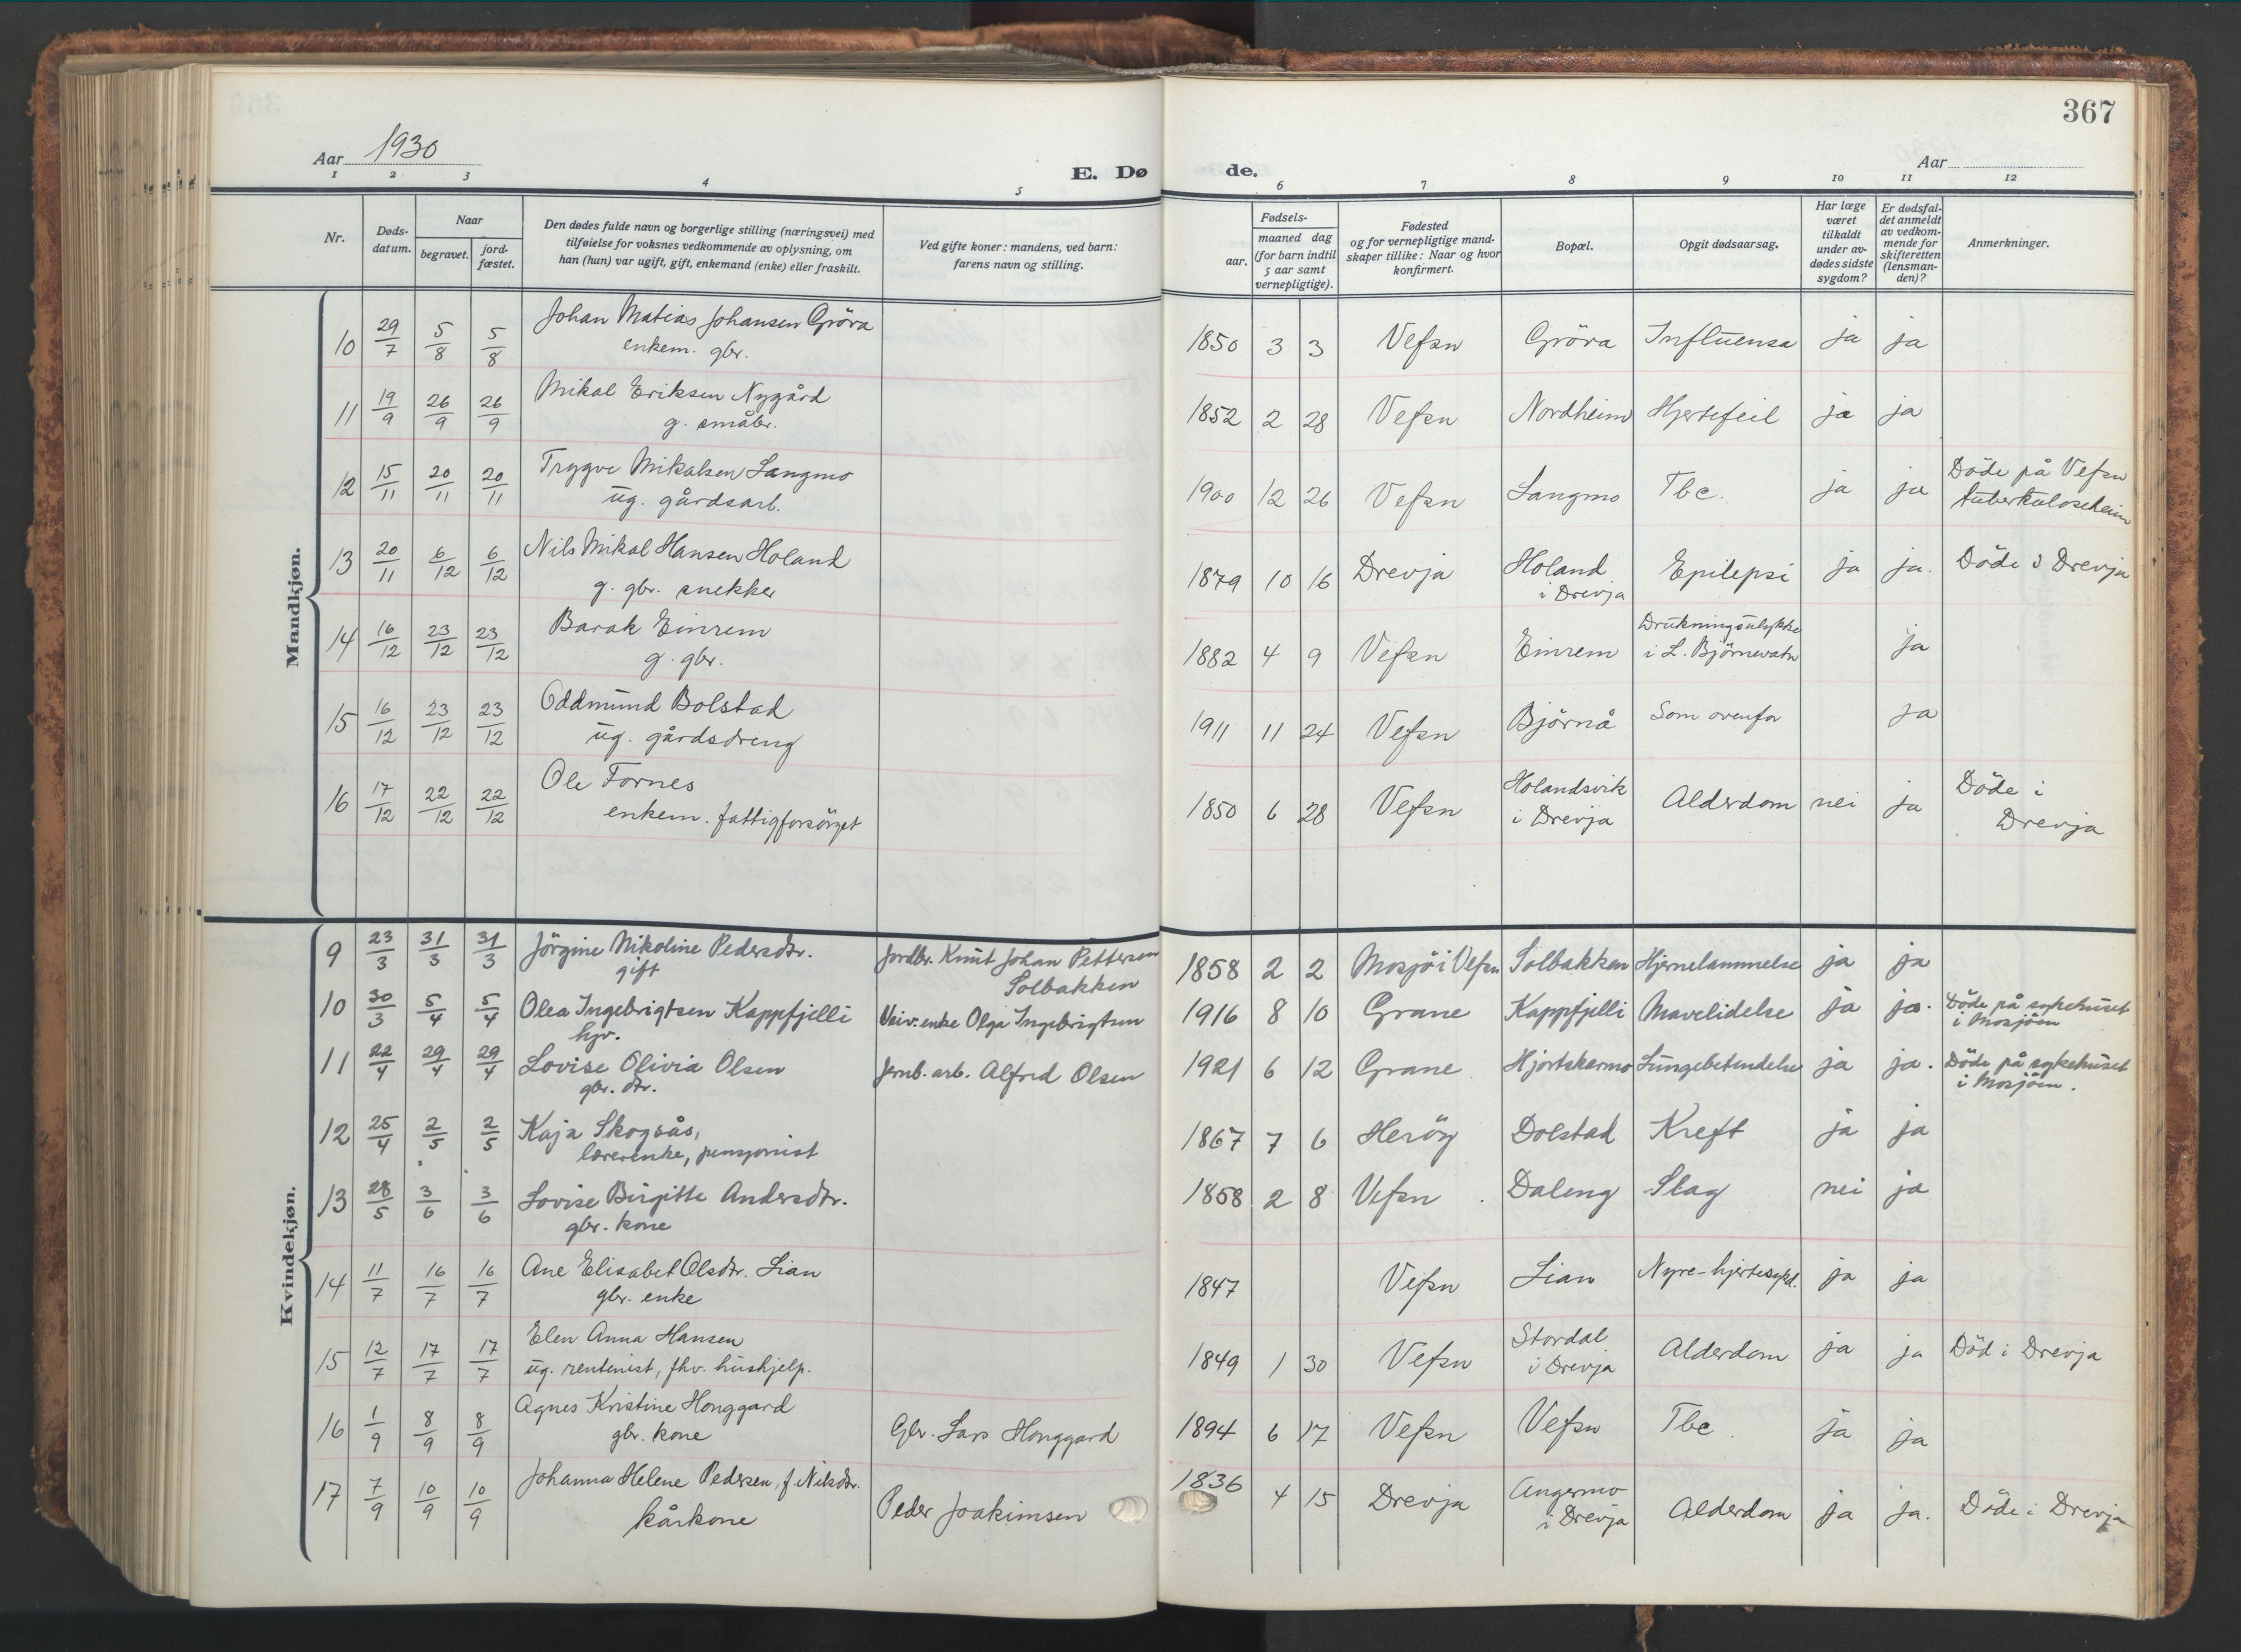 367
Aar 1930
E. Døde.
Aar
1 2 3 4 5 6 7 8 9 10 11 12
Nr.
Døds-
datum.
Naar
begravet.
jord-
fæstet.
Den dødes fulde navn og borgerlige stilling (næringsvei) med
tilføielse for voksnes vedkommende av oplysning, om
han (hun) var ugift, gift, enkemand (enke) eller fraskilt.
Ved gifte koner: mandens, ved barn:
farens navn og stilling.
Fødsels-
aar.
maaned dag
(for barn indtil
5 aar samt
vernepligtige).
Fødested
og for vernepligtige mand-
skaper tillike: Naar og hvor
konfirmert.
Bopæl.
Opgit dødsaarsag.
Har læge
været
tilkaldt
under av-
dødes sidste
sygdom?
Er dødsfal-
det anmeldt
av vedkom-
mende for
skifteretten
(lensman-
den)?
Anmerkninger.
Mandkjøn.
10 29/7 5/8 5/8 Johan Matias Johansen Gröva 1850 3 3 Vefsn Gröva Influensa ja ja
enkem. gbr.
11 19/9 26/9 26/9 Mikal Eriksen Nygård 1852 2 28 Vefsn Nordheim Hjertefeil ja ja
g. småbr.
12 15/11 20/11 20/11 Trygve Mikalsen Langmo 1900 12 26 Vefsn Langmo Tbc. ja ja Döde på Vefsn
ug. gårdsarb. tuberkuloseheim
13 20/11 6/12 6/12 Nils Mikal Hansen Holand 1879 10 16 Drevja Holand Epilepsi ja ja. Döde i Drevja
g. gbr. snekker i Drevja
14 16/12 23/12 23/12 Barak Einrem 1882 4 9 Vefsn Einrem Drukningsulykke ja
g. gbr. i L. Björnevatn
15 16/12 23/12 23/12 Oddmund Bolstad 1911 11 24 Vefsn Björnå Som ovenfor ja
ug. gårdsdreng
16 17/12 22/12 22/12 Ole Fornes 1850 6 28 Vefsn Holandsvik Alderdom nei ja Döde i
enkem. fattigforsörget i Drevja Drevja
Kvindekjøn.
9 23/3 31/3 31/3 Jörgine Nikoline Pedersdtr. Jordbr. Knut Johan Pettersen 1858 2 2 Mosjö i Vefsn Solbakken Hjernelammelse ja ja
gift Solbakken
10 30/3 5/4 5/4 Olea Ingebrigtsen Kappfjelli Veiv. enke Olga Ingebrigtsen 1916 8 10 Grane Kappfjelli Mavelidelse ja ja. Döde på sykehuset
hjv. i Mosjöen
11 22/4 29/4 29/4 Lovise Olivia Olsen Jernb. arb. Alfred Olsen 1921 6 12 Grane Hjortskarmo Lungebetendelse ja ja. Döde på sykehuset
gbr. dtr. i Mosjöen.
12 25/4 2/5 2/5 Kaja Skogsås, 1867 7 6 Heröy Dolstad Kreft ja ja
lærerenke, pensjonist
13 28/5 3/6 3/6 Lovise Birgitte Andersdtr. 1858 2 8 Vefsn Daleng Slag nei ja
gbr. kone
14 11/7 16/7 16/7 Ane Elisabet Olsdtr. Lian 1847 Vefsn Lian Nyre-hjertesykd. ja ja
gbr. enke
15 12/7 17/7 17/7 Elen Anna Hansen 1849 1 30 Vefsn Stordal Alderdom ja ja Död i Drevja
ug. rentenist, fhv. hushjelp. i Drevja
16 1/9 8/9 8/9 Agnes Kristine Honggard Gbr. Lars Honggard 1894 6 17 Vefsn Vefsn Tbc. ja ja
gbr. kone
17 7/9 10/9 10/9 Johanna Helene Pedersen, f. Nilsdtr. Peder Joakimsen 1836 4 15 Drevja Angermo Alderdom ja ja. Döde i Drevja
kårkone i Drevja